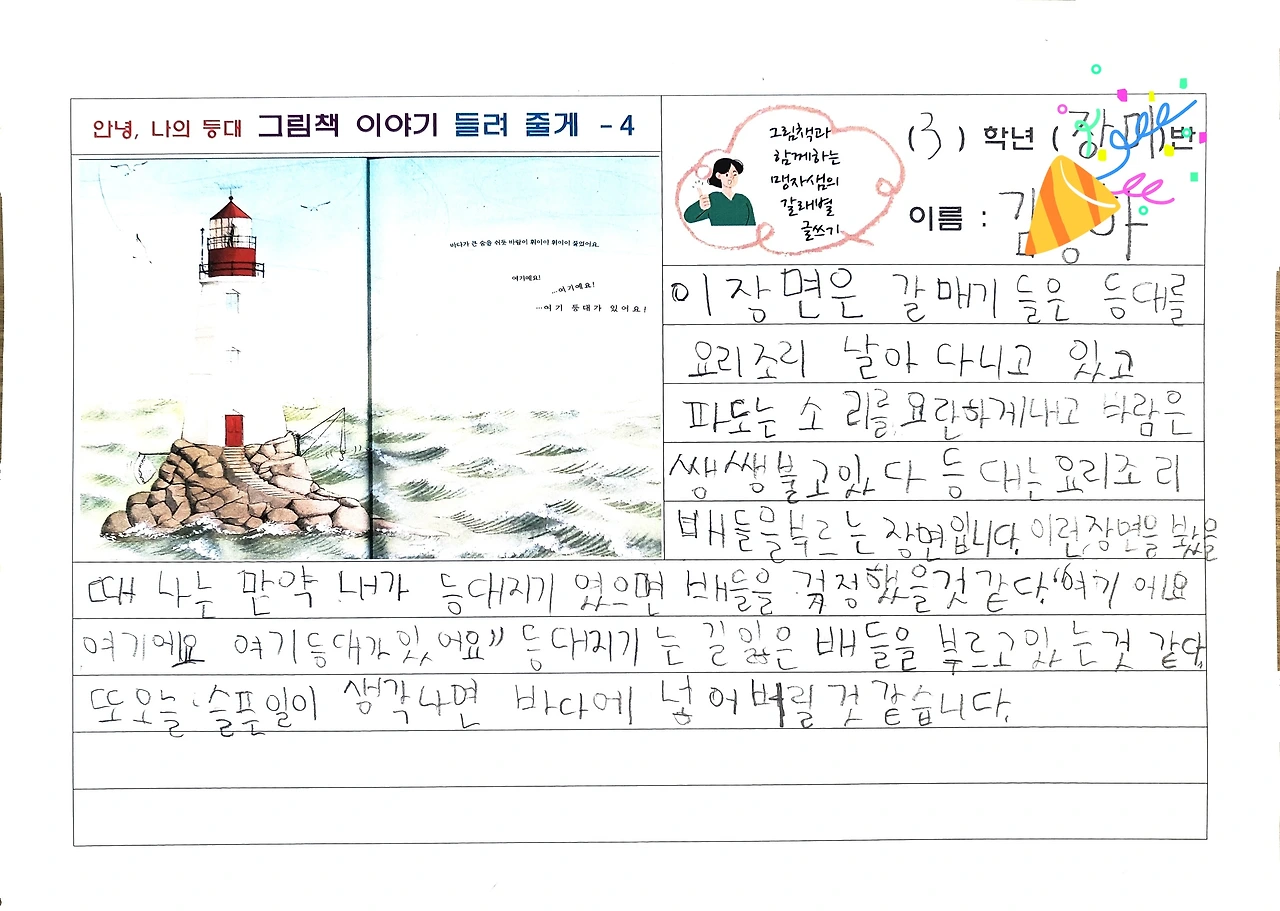 안녕, 나의 등대 그림책 이야기 들려 줄게 - 4
그림책과
함께하는
맹자샘의
갈래별
글쓰기
(3) 학년 (장미)반
이름 :
바다가 큰 숨을 쉬듯 바람이 휘이이 휘이이 불었어요.
여기예요!
...여기예요!
...여기 등대가 있어요!
이 장면은 갈매기 들은 등대를
요리조리 날아 다니고 있고
파도는 소 리를 요란하게내고 바람은
쌩쌩불고있 다 등 대는 요리조 리
배들을부르 는 장면입니다. 이런장면을 봤을
때 나는 만약 내가 등대지기 였으면 배들을 걱정했을것 같다."여기 에요
여기에요 여기등대가있어요" 등대지기 는 길잃은 배들을 부르고있 는것 같다.
또 오늘 슬픈일이 생각나면 바다에 넣어버릴 것 같습니다.